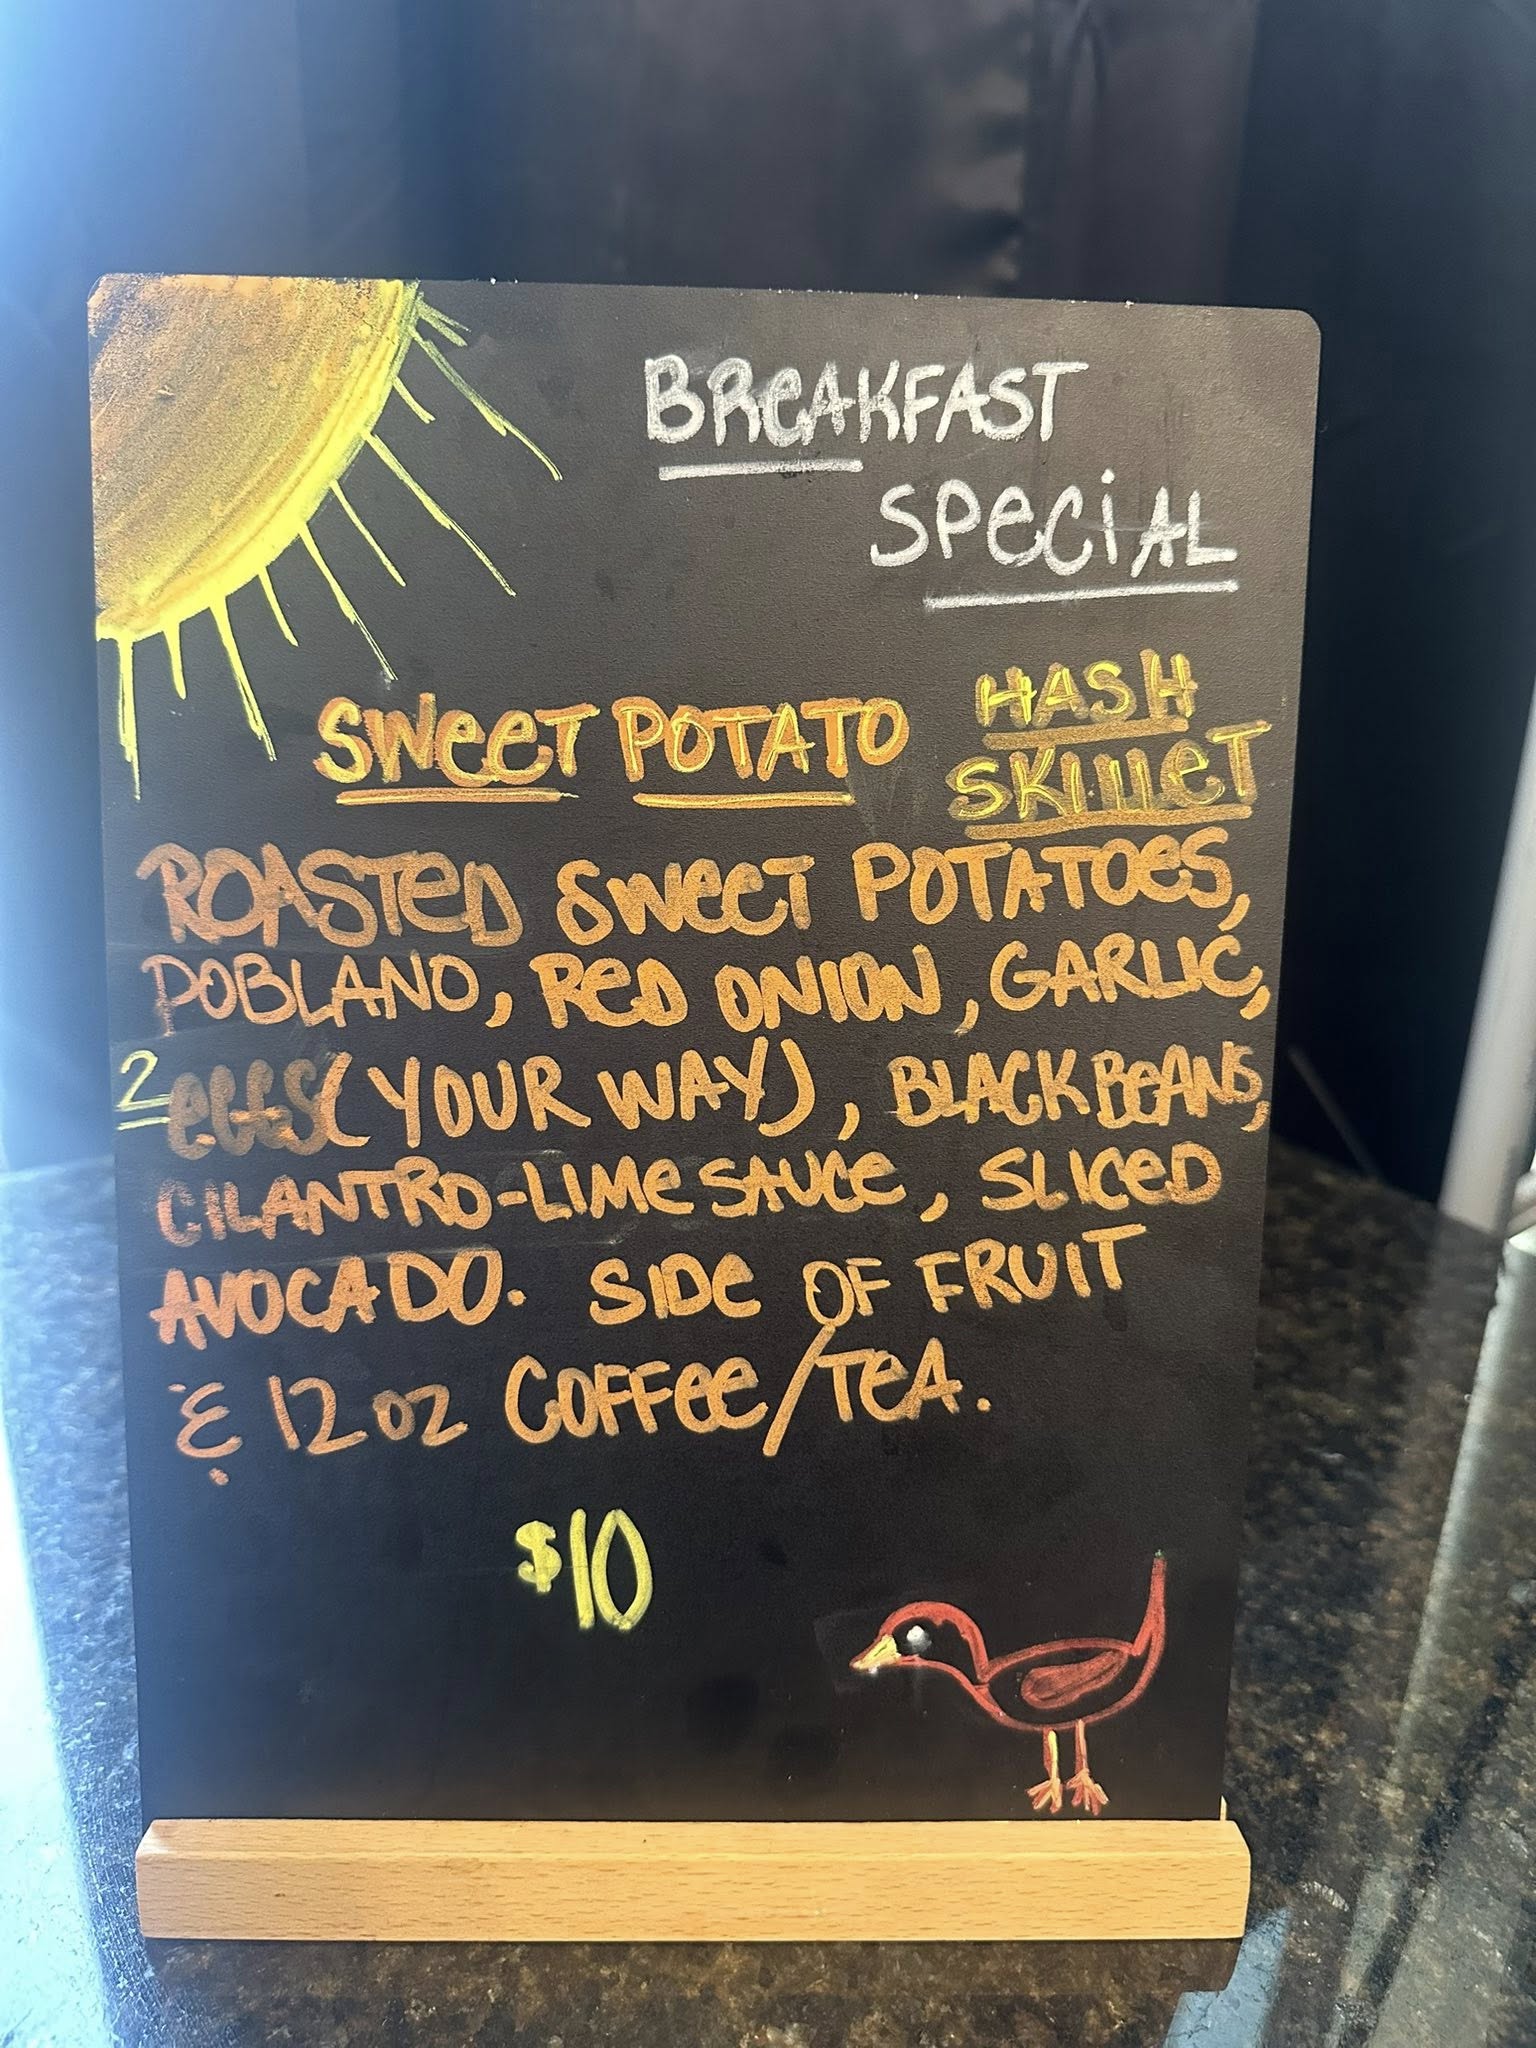 BREAKFAST
SPECIAL
SWEET POTATO HASH
SKILLET
ROASTED SWEET POTATOES,
POBLANO, RED ONION, GARLIC,
2 EGGS (YOUR WAY), BLACK BEANS,
CILANTRO-LIME SAUCE, SLICED
AVOCADO. SIDE OF FRUIT
& 12 OZ COFFEE/TEA.
$10